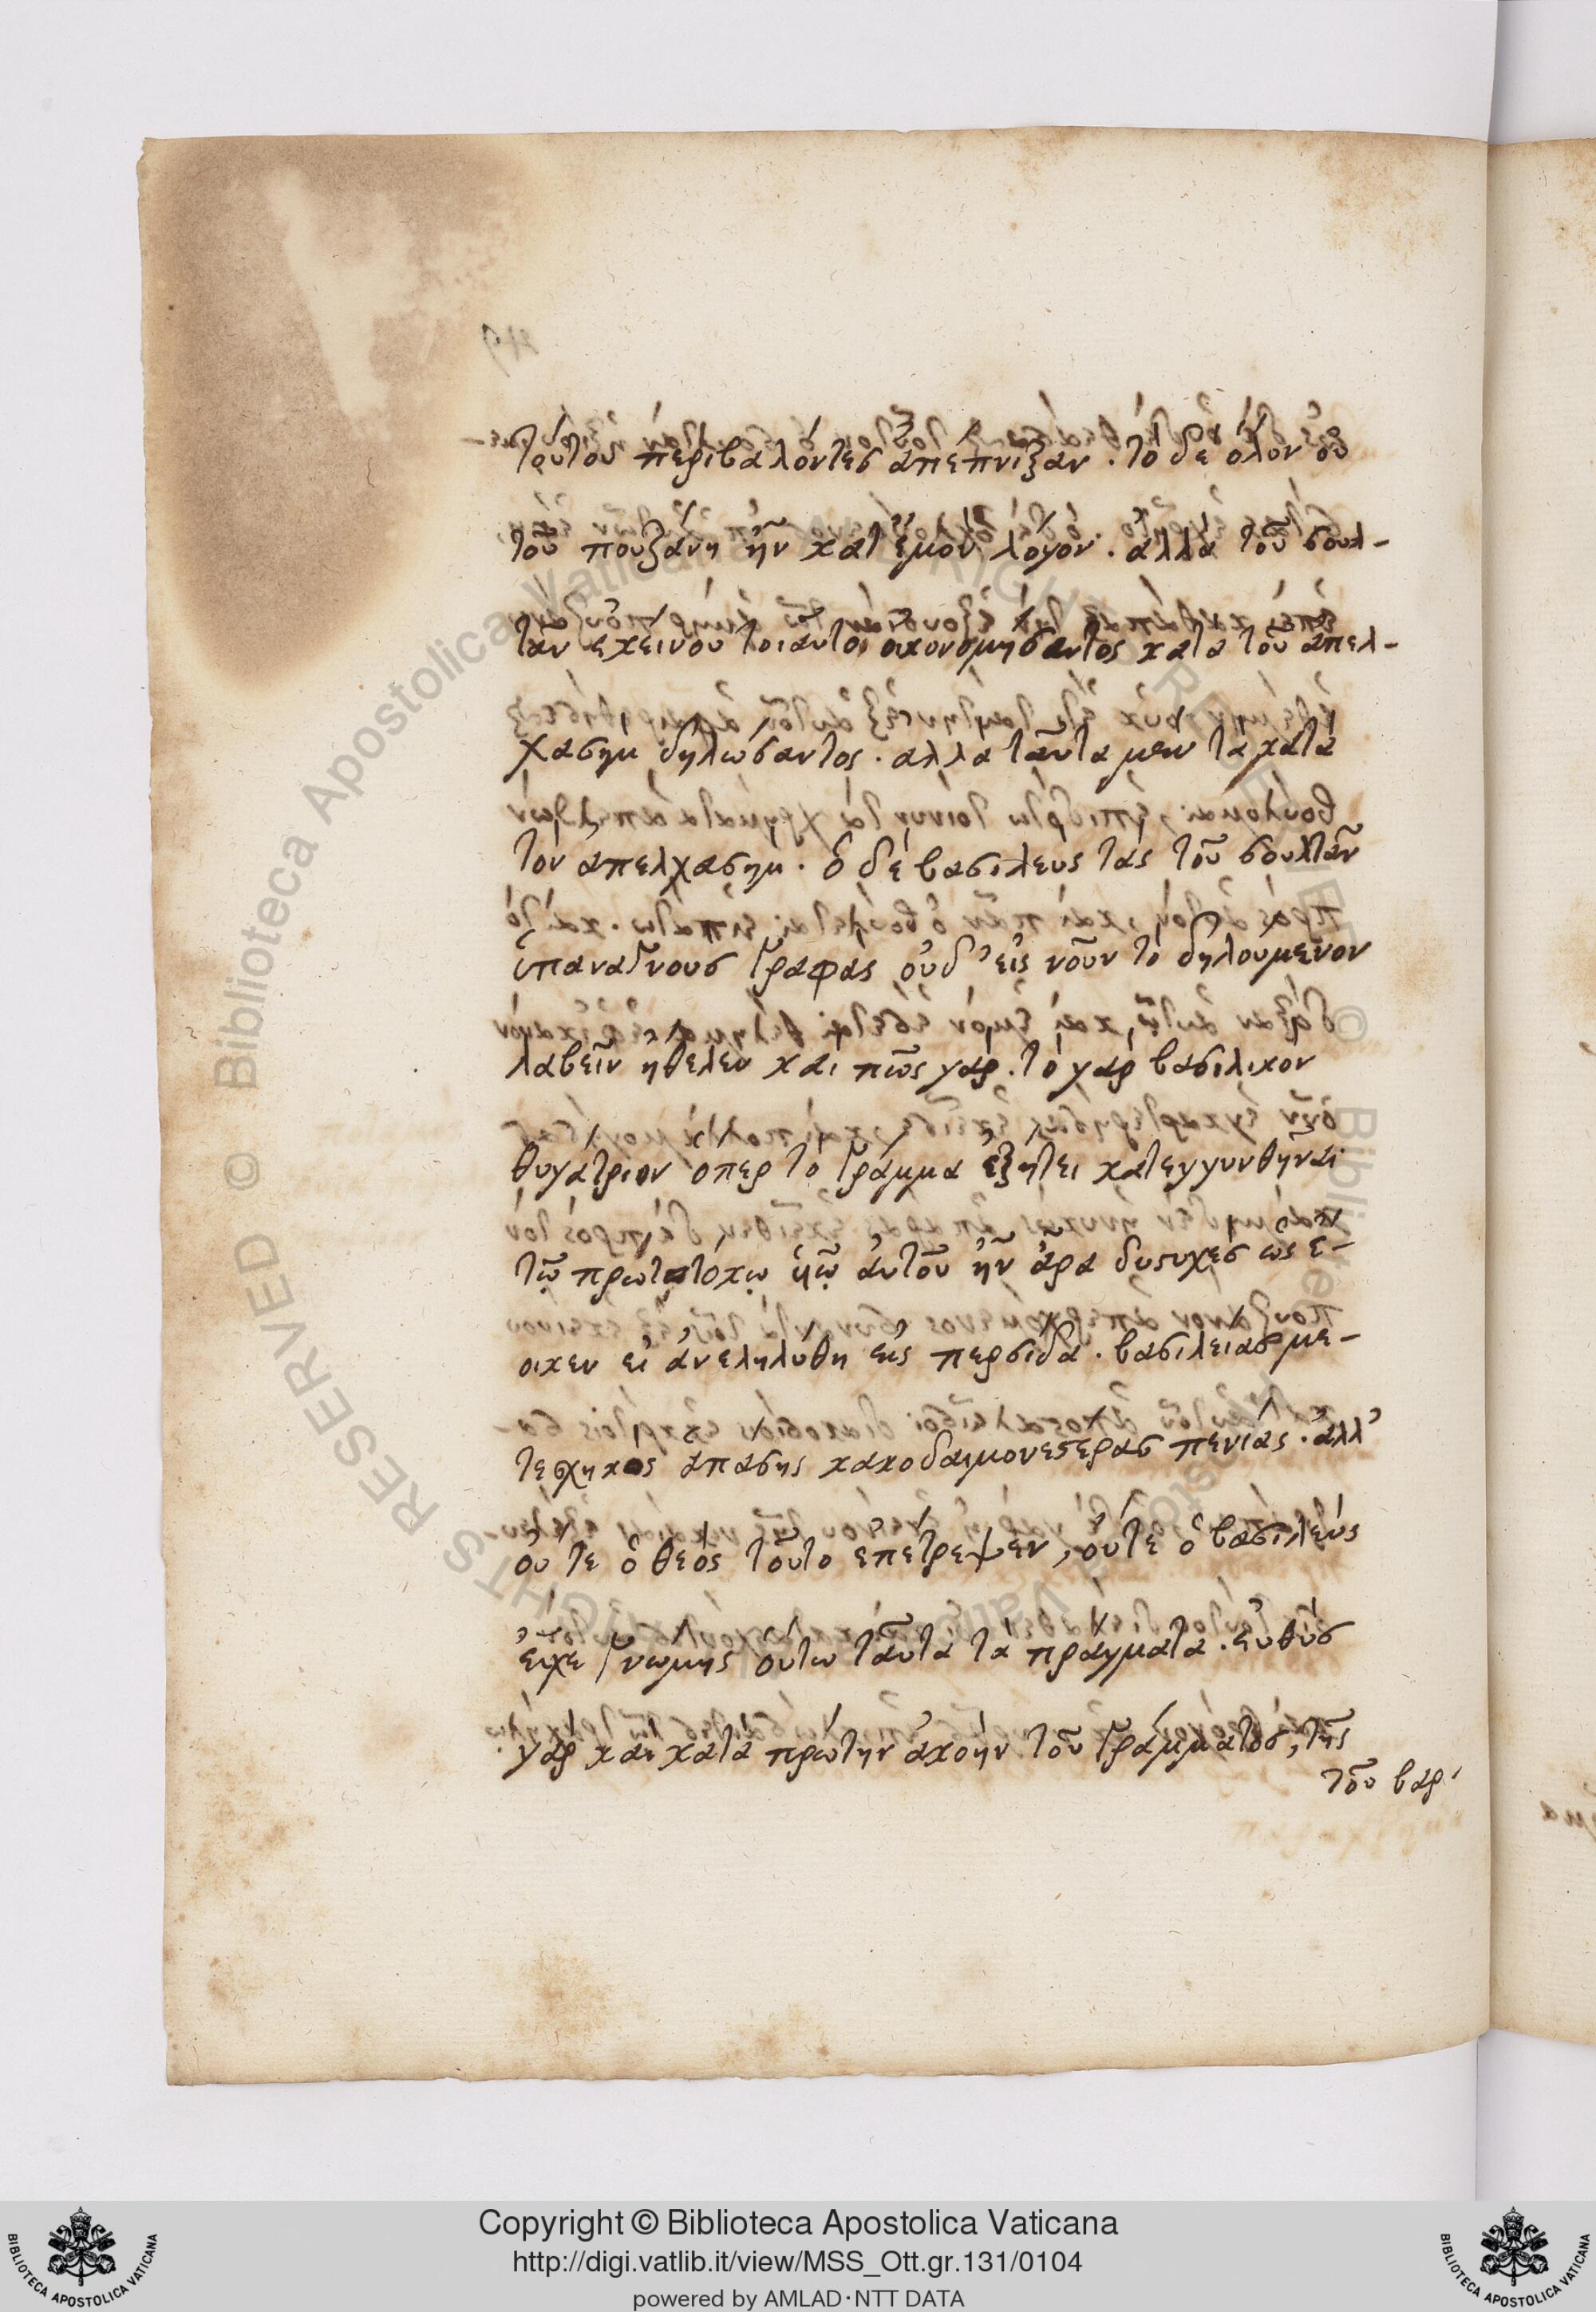 τούτου περιβαλόντες ἀπέπνιξαν. τὸ δὲ ὅλον οὐ
τοῦ πουζάνη ἦν κατ' ἐμὸν λόγον. ἀλλὰ τοῦ σουλ-
τὰν ἐκείνου τοιαυτοι οικονομησαντος κατὰ τοῦ ἀπελ-
χασημ δηλώσαντος. ἀλλὰ ταῦτα μὲν τὰ κατὰ
τὸν ἀπελχασημ. ὁ δὲ βασιλευς τὰς τοῦ σουλτὰν
ὑπαναγνοὺς γραφας οὐδ' εἰς νοῦν τὸ δηλούμενον
λαβεῖν ἤθελεν καὶ πῶς γάρ. τὸ γὰρ βασιλικον
θυγάτριον ὅπερ τὸ γράμμα ἐζήτει κατεγγυηθῆναι
τῷ πρωτοτόκῳ ὑιῷ ἀυτοῦ ἦν ἄρα δυστυχες ὡς ἐ-
οικεν εἰ ἀνεληλύθη εἰς περσίδα. βασιλείας με-
τεσχηκος απασης κακοδαιμονεστερας πενίας. ἀλλ'
οὔτε ὁ θεὸς τοῦτο επέτρεψεν, οὔτε ὁ βασιλεὺς
εἶχε γνώμης οὕτω ταῦτα τὰ πράγματα. εὐθὺς
γὰρ καὶ κατὰ πρώτην ἀκοὴν τοῦ γράμματος, τῆς
τοῦ βαρ